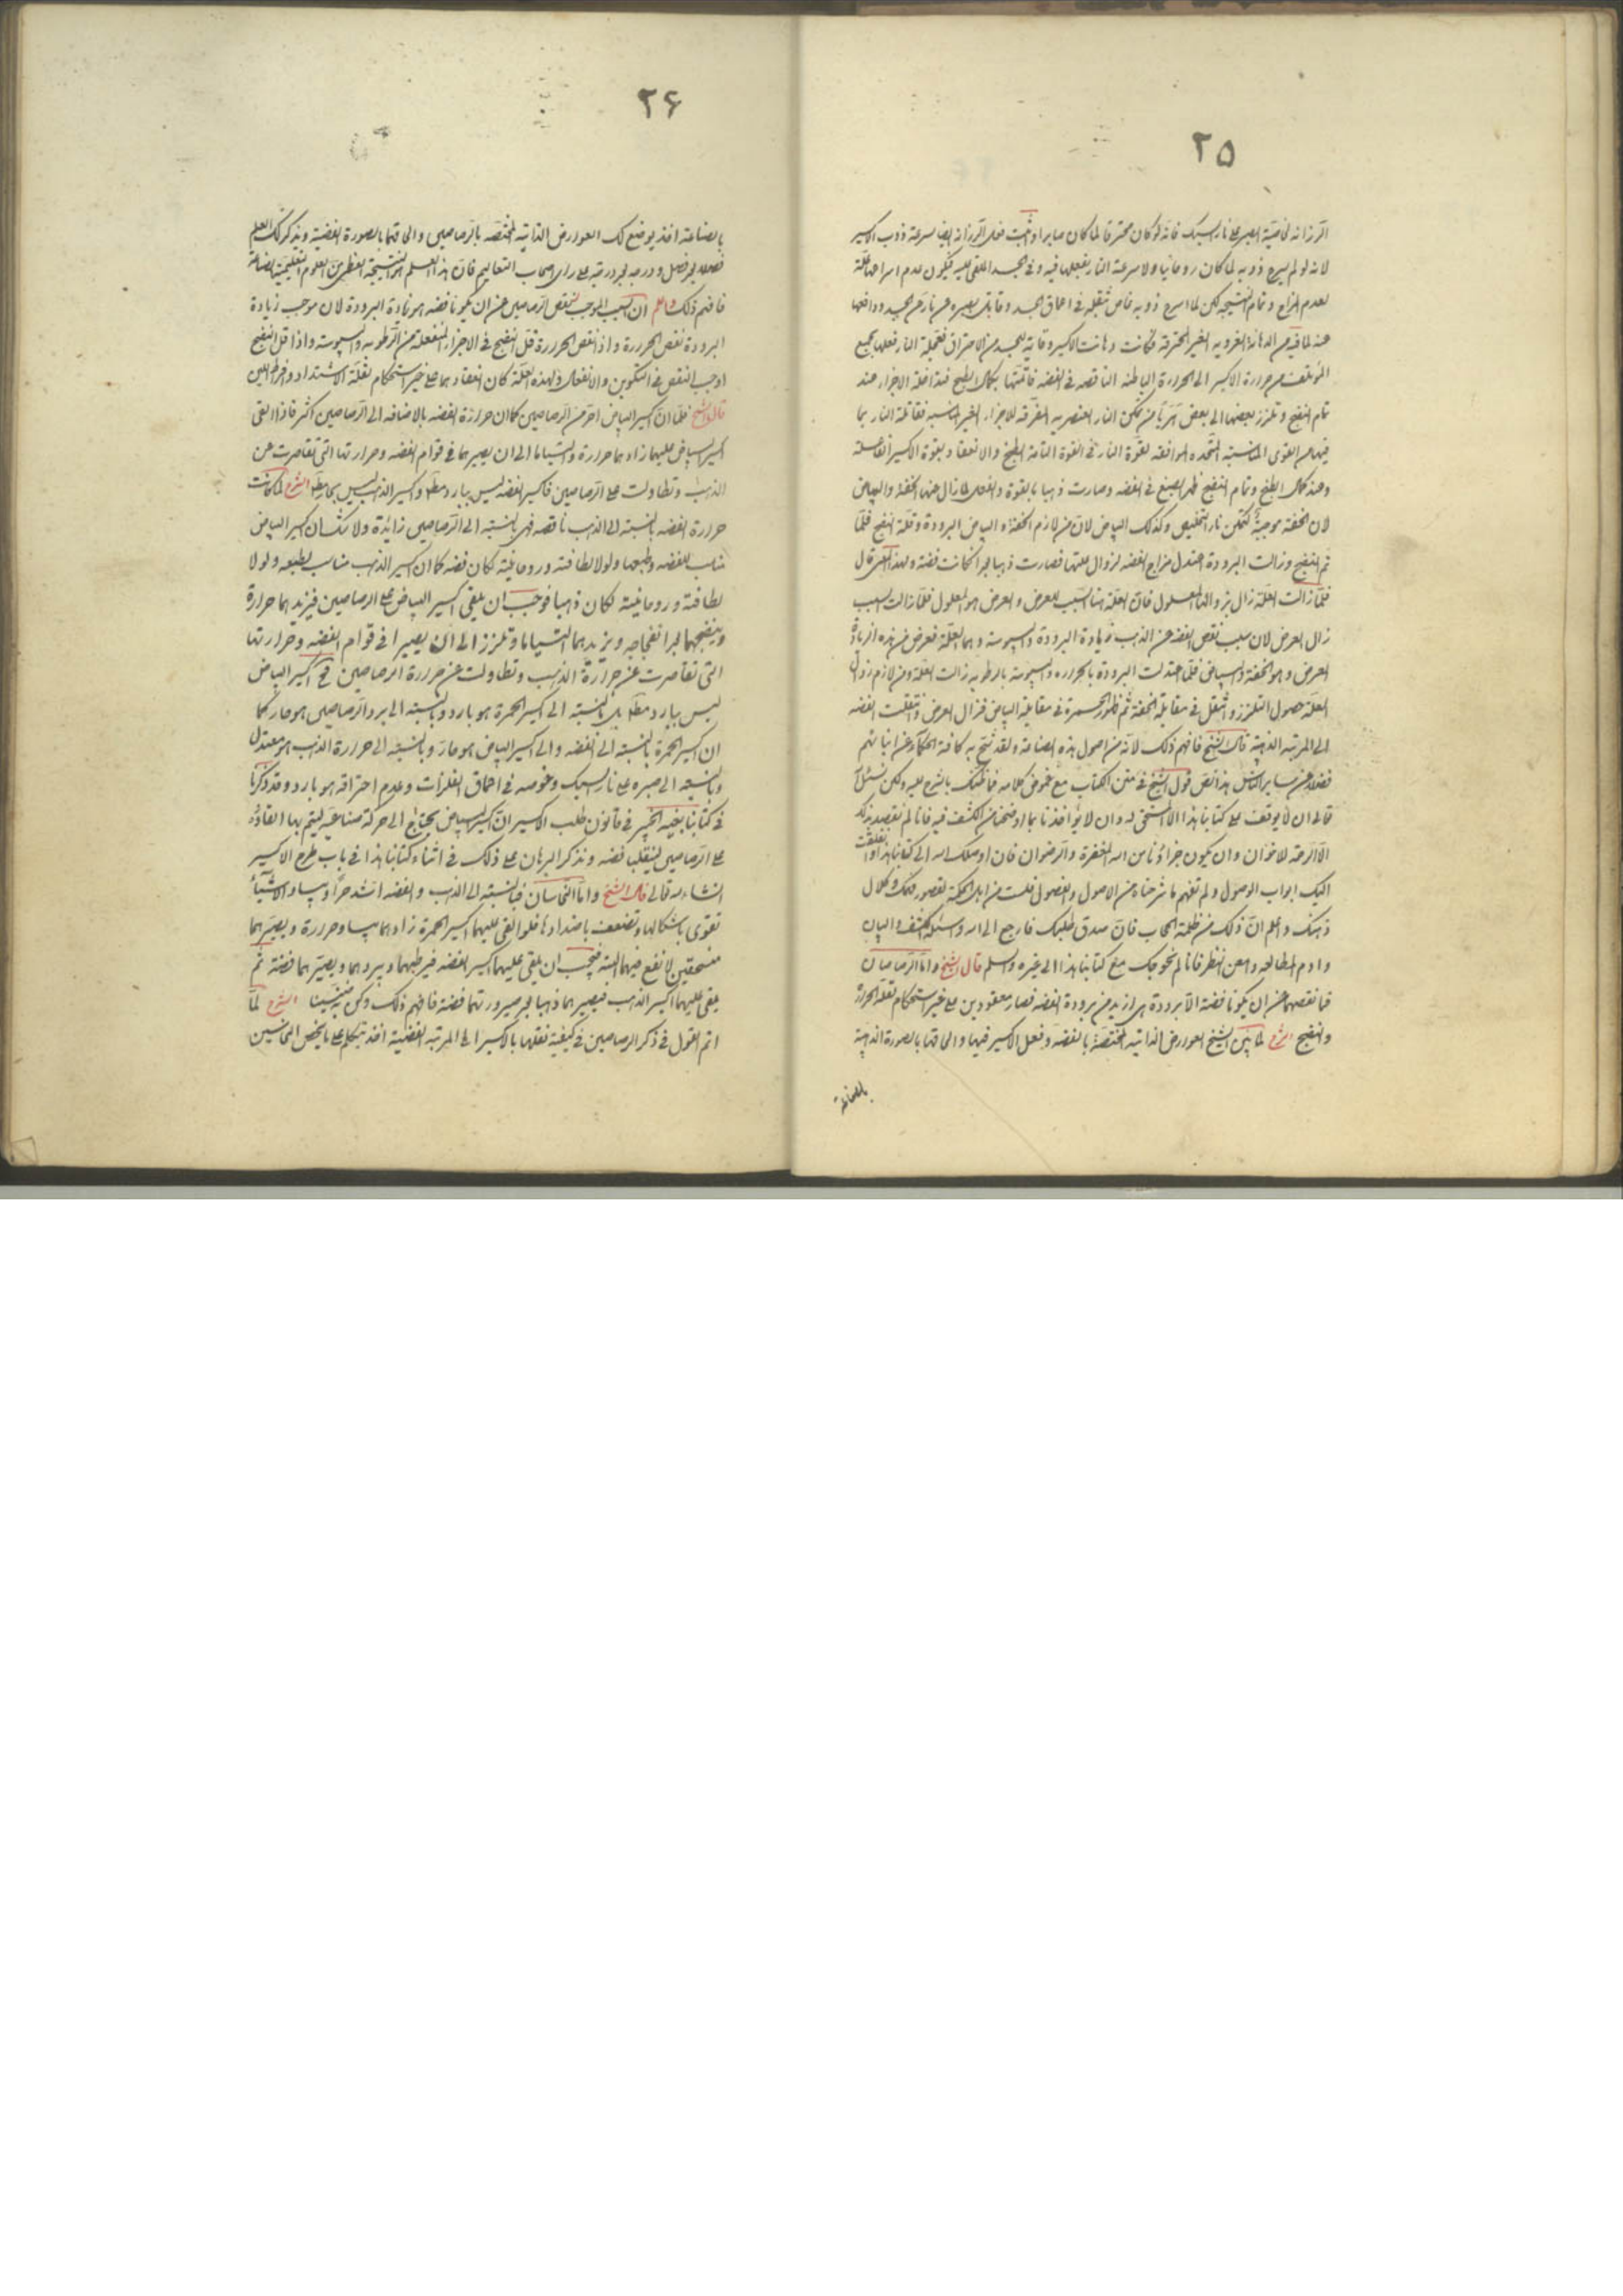 ٢٥
الرزانه لخاصية الصبر على نار السبك فانه لو كان محترقا لما كان صابرا وثبت فعلى الرزانه ايضا سرعة ذوب الاكسير
لانه لو لم يسرع ذوبه لما كان روحانيا ولا سرعة النار بفعلها فيه وفى الجسد الملقى عليه فيكون عدم امتزاجها علة
لعدم المزاج وتمام النتيجه لكن لما اسرع ذوبه غاص بثقله فى اعماق الجسد وقابل بصبره عن نار حر الجسد ودافعها
عنه لما فيه من الدهانة الغرويه الغير المحترقه فكانت دهانت الاكسير وقاية للجسد من الاحتراق فعملية النار فعلها بجميع
المؤتلف من حرارة الاكسير الى الحرارة الباطنه الناقصه فى الفضه فاتمتها بكمال الطبخ فتداخلة الاجزاء عند
تمام النضج وتلزز بعضها الى بعض هربا من تمكن النار العنصريه المفرقه للاجزاء الغير المناسبه فقابلة النار بما
فيها من القوى المناسبة المتحده الموافقه لقوة النار فى القوة التامة الطبخ والانعقاد بقوة الاكسير الفاضلة
وعند كمال الطبخ وتمام النضج ظهر الصبغ فى الفضه وصارت ذهبا بالقوة والفعل لما زال عنها الخفة والبياض
لان الخفة موجبة لتمكن نار التخليص وكذلك البياض لان من لازم الخفة والبياض البرودة وقلة النضج فلما
تم النضج وزالت البرودة اعتدل مزاج الفضه لزوال علتها فصارت ذهبا بعد ان كانت فضة ولهذا المعنى قال
فلما زالت العلة زال بزوالها المعلول فان العلة هنا السبب للعرض والعرض هو المعلول فلما زالت السبب
زال العرض لان سبب نقص الفضه عن الذهب زيادة البرودة واليبوسة وهما العلة فعرض من هذه الزيادة
العرض وهو الخفة والبياض فلما اعتدلت البرودة بالحراره واليبوسة بالرطوبه زالت العلة ومن لازم زوال
العلة حصول التلزز والثقل فى مقابلة الخفة ثم ظهور الحمرة فى مقابلة البياض فزال العرض وانتقلت الفضه
الى المرتبه الذهبية قال الشيخ فافهم ذلك لانه من اصول هذه الصناعة ولقد شح به كافة الحكماء عن ابنائهم
فضلا عن سائر الناس هذا نص قول الشيخ فى متن الكتاب مع غموض كلامه فما ظنك بالشرح عليه ولكن نسئل الله
تعالى ان لا يوقف على كتابنا هذا الا المستحق له وان لا يؤاخذنا بما اوضحنا من الكشف فيه فانا لم نقصد بذلك
الا الرحمة للاخوان وان يكون جزاؤنا من الله المغفرة والرضوان فان اوصلك الله الى كتابنا هذا وانغلقت
اليك ابواب الوصول ولم تفهم ما شرحناه من الاصول والفصول فلست من اهل الحكمة لقصور فهمك وكلال
ذهنك واعلم ان ذلك من ظلمة الحجاب فان صدق طلبك فارجع الى الله وسئله الكشف والبيان
وادم المطالعه وامعن النظر فانا لم نحوجك مع كتابنا هذا الى غيره والسلم قال الشيخ واما الرصاصان
فما نقصهما عن ان يكونا فضة الا برودة هى ازيد من برودة الفضه فصارا معقودين على غير استحكام لقلة الحرارة
والنضج الشرح لما بين الشيخ العوارض الذاتيه المختصة بالفضه وفعل الاكسير فيها والحاقها بالصورة الذهبية
بالصناعة
٢۶
بالصناعة اخذ يوضح لك العوارض الذاتيه المختصه بالرصاصين والحاقهما بالصورة الفضية ويذكر لك العلم
فصلا بعد فصل ودرجه بعد درجه على راى اصحاب التعاليم فان هذا العلم هو النتيجة العظمى من العلوم التعليمية الصادقة
فافهم ذلك واعلم ان السبب الموجب لنقص الرصاصين عن ان يكونا فضه هو زيادة البرودة لان موجب زيادة
البرودة نقص الحرارة واذا نقص الحرارة قل النضج فى الاجزاء المنفعلة من الرطوبه واليبوسة واذا قل النضج
اوجب النقص فى التكوين والانفعال ولهذه العلة كان انعقادهما على غير استحكام لقلة الاشتداد وفرط اللين
قال الشيخ فلما ان اكسير البياض احر من الرصاصين كما ان حرارة الفضه بالاضافه الى الرصاصين اكثر فاذا القى
اكسير البياض عليهما زادهما حرارة والتياما الى ان يصيرهما فى قوام الفضه وحرارتها التى تقاصرت عن
الذهب وتطاولت على الرصاصين فاكسير الفضه ليس ببارد مطلقا واكسير الذهب ليس بحار مطلقا الشرح لما كانت
حرارة الفضه بالنسبة الى الذهب ناقصه فهى بالنسبة الى الرصاصين زائدة ولا شك ان اكسير البياض
مناسب للفضه وطبعها ولولا لطافته وروحانيته لكان فضه كما ان اكسير الذهب مناسب لطبعه ولولا
لطافته وروحانيته لكان ذهبا فوجب ان يلقى اكسير البياض على الرصاصين فيزيدهما حرارة
وينضجهما بعد انفجاجه ويزيدهما التياما وتلززا الى ان يصيرا فى قوام الفضه وحرارتها
التى تقاصرت عن حرارة الذهب وتطاولت عن حرارة الرصاصين فح اكسير البياض
ليس ببارد مطلقا بل بالنسبة الى اكسير الحمرة هو بارد وبالنسبة الى برد الرصاصين هو حار كما
ان اكسير الحمرة بالنسبة الى الفضه والى اكسير البياض هو حار وبالنسبة الى حرارة الذهب هو معتدل
وبالنسبة الى صبره على نار السبك وغوصه فى اعماق الفلزات وعدم احتراقه هو بارد وقد ذكرنا
فى كتابنا بغية الخبير فى قانون طلب الاكسير ان اكسير البياض يحتاج الى حركة صناعية ليتم بها القاؤه
على الرصاصين لينقلبا فضه ونذكر البرهان على ذلك فى اثناء كتابنا هذا فى باب طرح الاكسير
انشاء الله تعالى قال الشيخ واما النحاسان فبالنسبة الى الذهب والفضه اشد حرا ويبسا والاشياء
تقوى باشكالها وتضعف باضدادها فلو القى عليهما اكسير الحمرة زادهما يبسا وحرارة ويصيرهما
منسحقين لا نفع فيهما البته فيجب ان يلقى عليهما اكسير الفضه فيرطبهما ويبردهما ويصيرهما فضة ثم
يلقى عليهما اكسير الذهب فيصيرهما ذهبا بعد صيرورتهما فضة فافهم ذلك وكن الشرح لما
اتم القول فى ذكر الرصاصين فى كيفية نقلهما بالاكسير الى المرتبه الفضية اخذ يتكلم على ما يخص النحاسين